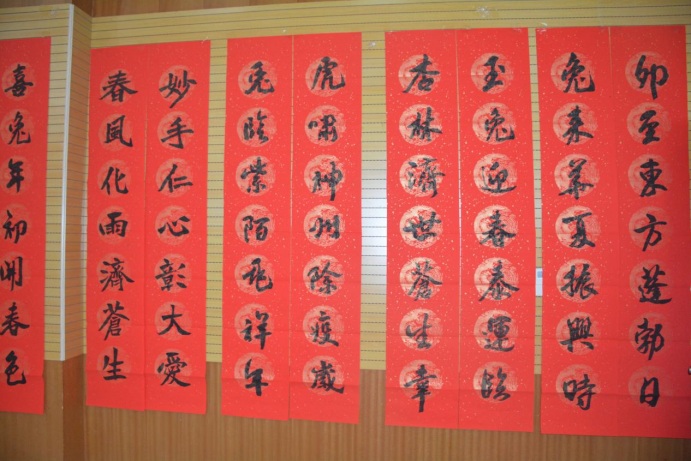 卯至東方蓬勃日
兔來華夏振興時
玉兔迎春泰運臨
杏林濟世蒼生幸
虎嘯神州除疫歲
兔臨紫陌兆祥年
妙手仁心彰大愛
春風化雨濟蒼生
喜兔年初開春色